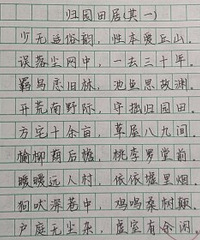 归园田居(其一)
少无适俗韵，性本爱丘山。
误落尘网中，一去三十年。
羁鸟恋旧林，池鱼思故渊。
开荒南野际，守拙归园田。
方宅十余亩，草屋八九间。
榆柳荫后檐，桃李罗堂前。
暧暧远人村，依依墟里烟。
狗吠深巷中，鸡鸣桑树颠。
户庭无尘杂，虚室有余闲。